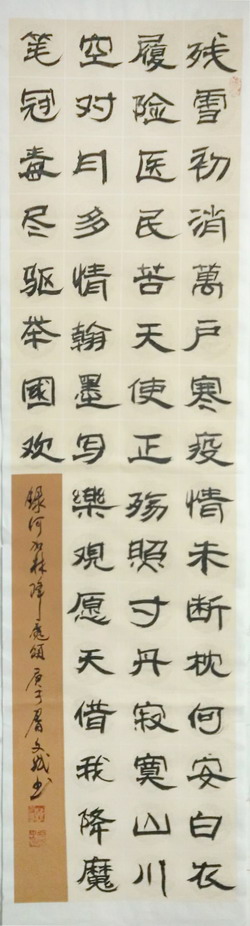 残雪初消萬户寒疫情未断枕何安白衣
履险医民苦天使正殇照寸丹寂寞山川
空对月多情翰墨写樂观愿天借我降魔
笔冠毒尽驱举國欢
降魔颂庚子春文斌书